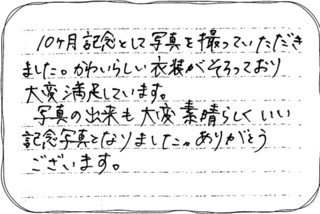 10ヶ月記念として写真を撮っていただき
ました。かわいらしい衣装がそろっており
大変満足しています。
写真の出来も大変素晴らしくいい
記念写真となりました。ありがとう
ございます。